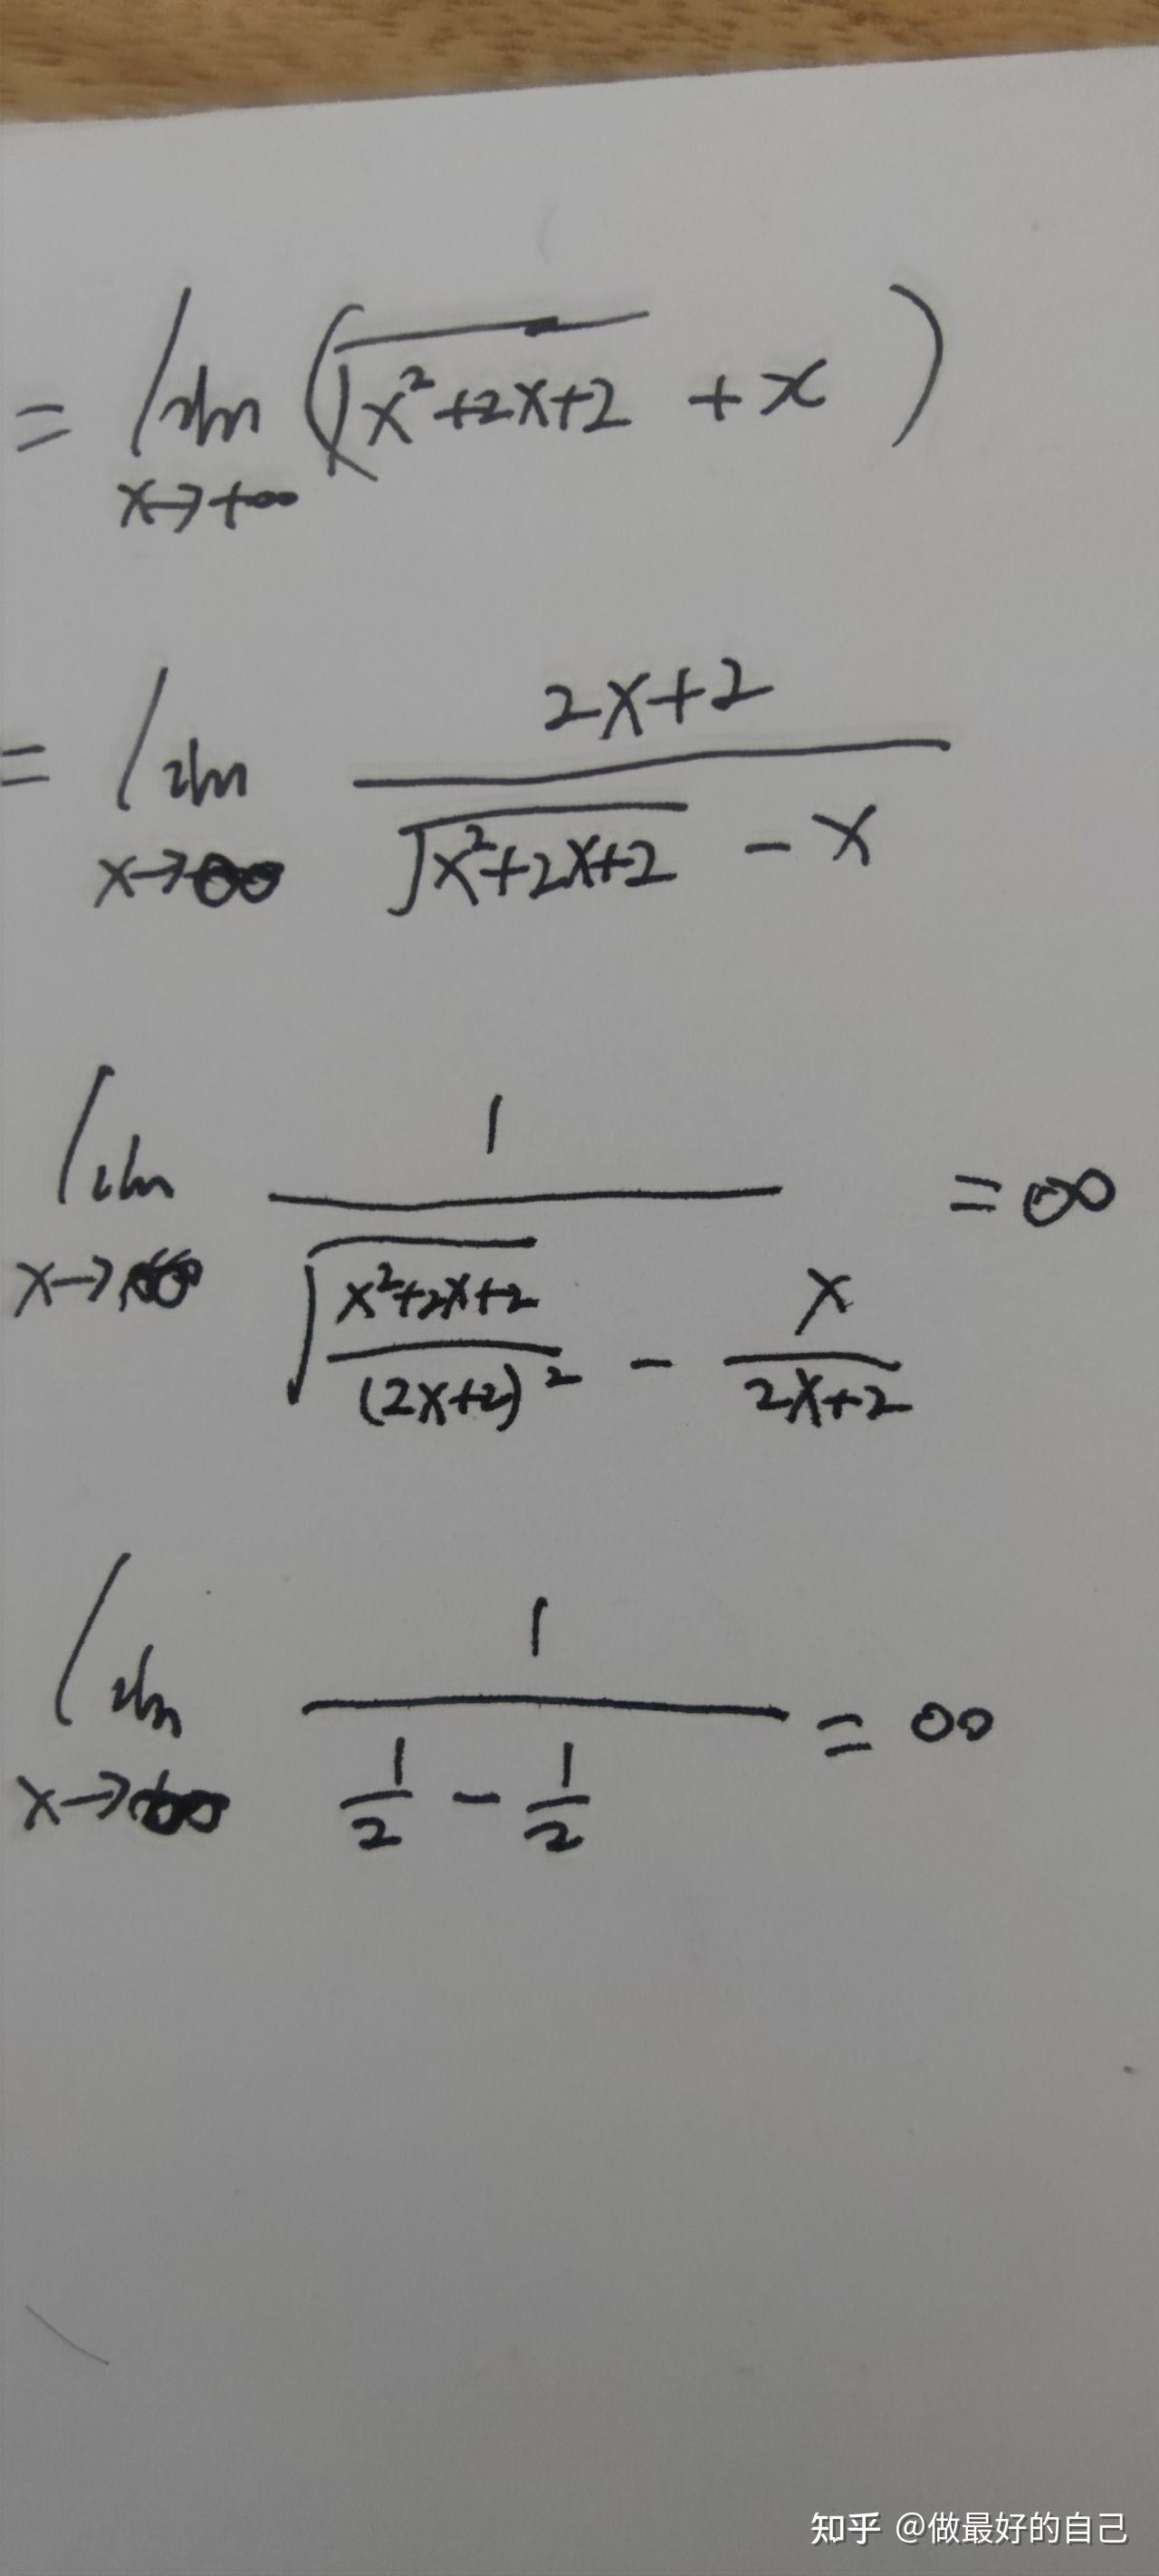 = lim (√(x²+2x+2) + x)
x→+∞
2x+2
= lim ―――――――
x→∞ √(x²+2x+2) - x
1
lim ――――――― = ∞
x→∞ √((x²+2x+2)/(2x+2)²) - x/(2x+2)
1
lim ――――――― = ∞
x→∞ 1/2 - 1/2
知乎 @做最好的自己